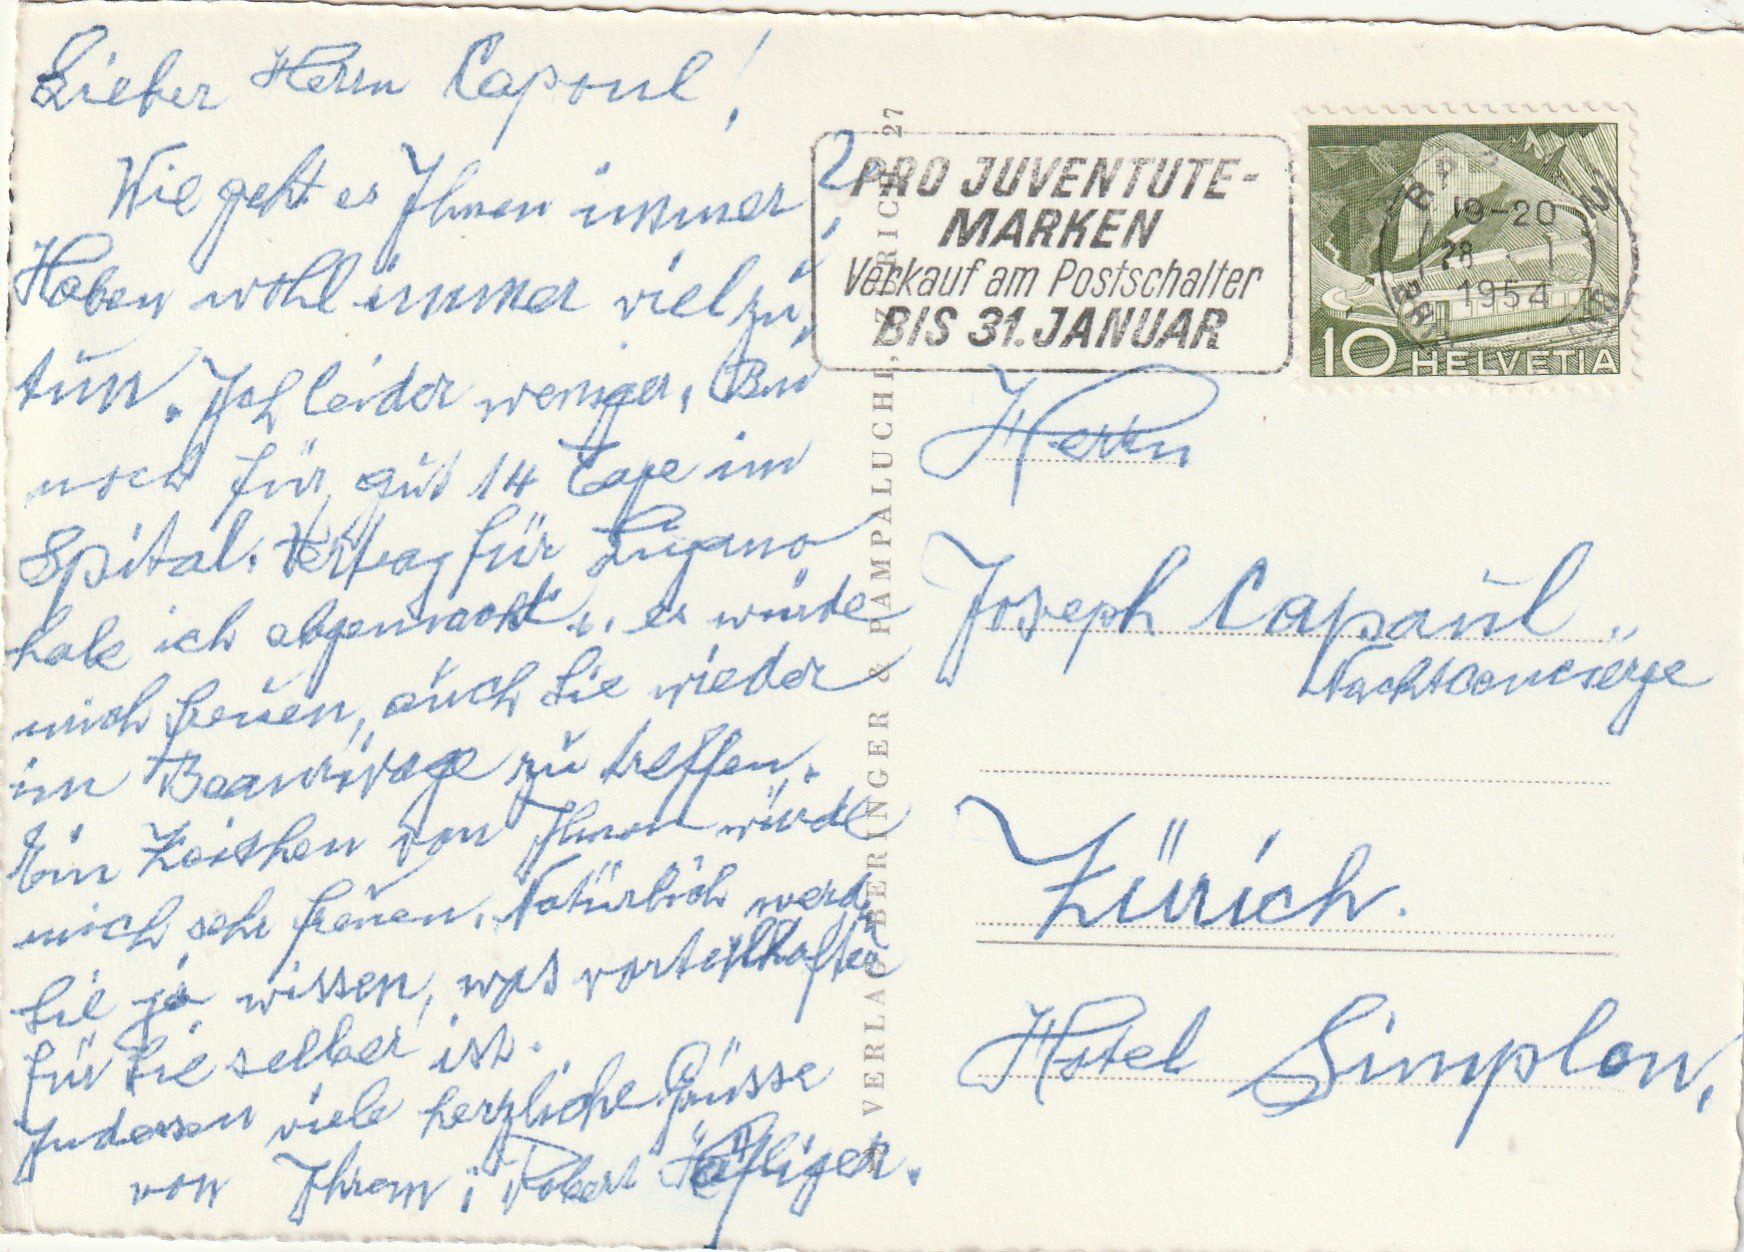 Lieber Herrn Capoul!
Wie geht es Ihnen immer?
Haben wohl immer viel zu
tun. Ich leider weniger, Bin
noch für gut 14 Tage im
Spital. Vertrag für Lugano
habe ich abgemacht u. es würde
mich freuen, auch Sie wieder
im Beaurivage zu treffen.
Ein Zeichen von Ihnen würde
mich sehr freuen. Natürlich werd.
Sie ja wissen, was vorteilhafter
für Sie selber ist.
Indessen viele herzliche Grüsse
von Ihrem: Robert Häfliger.
VERLAG BERINGER & PAMPALUCHI, ZÜRICH 27
PRO JUVENTUTE-
MARKEN
Verkauf am Postschalter
BIS 31. JANUAR
19-20
28.-1
1954
10 HELVETIA
Herrn
Joseph Capaul,,
Nachtconcierge
Zürich.
Hotel Simplon,